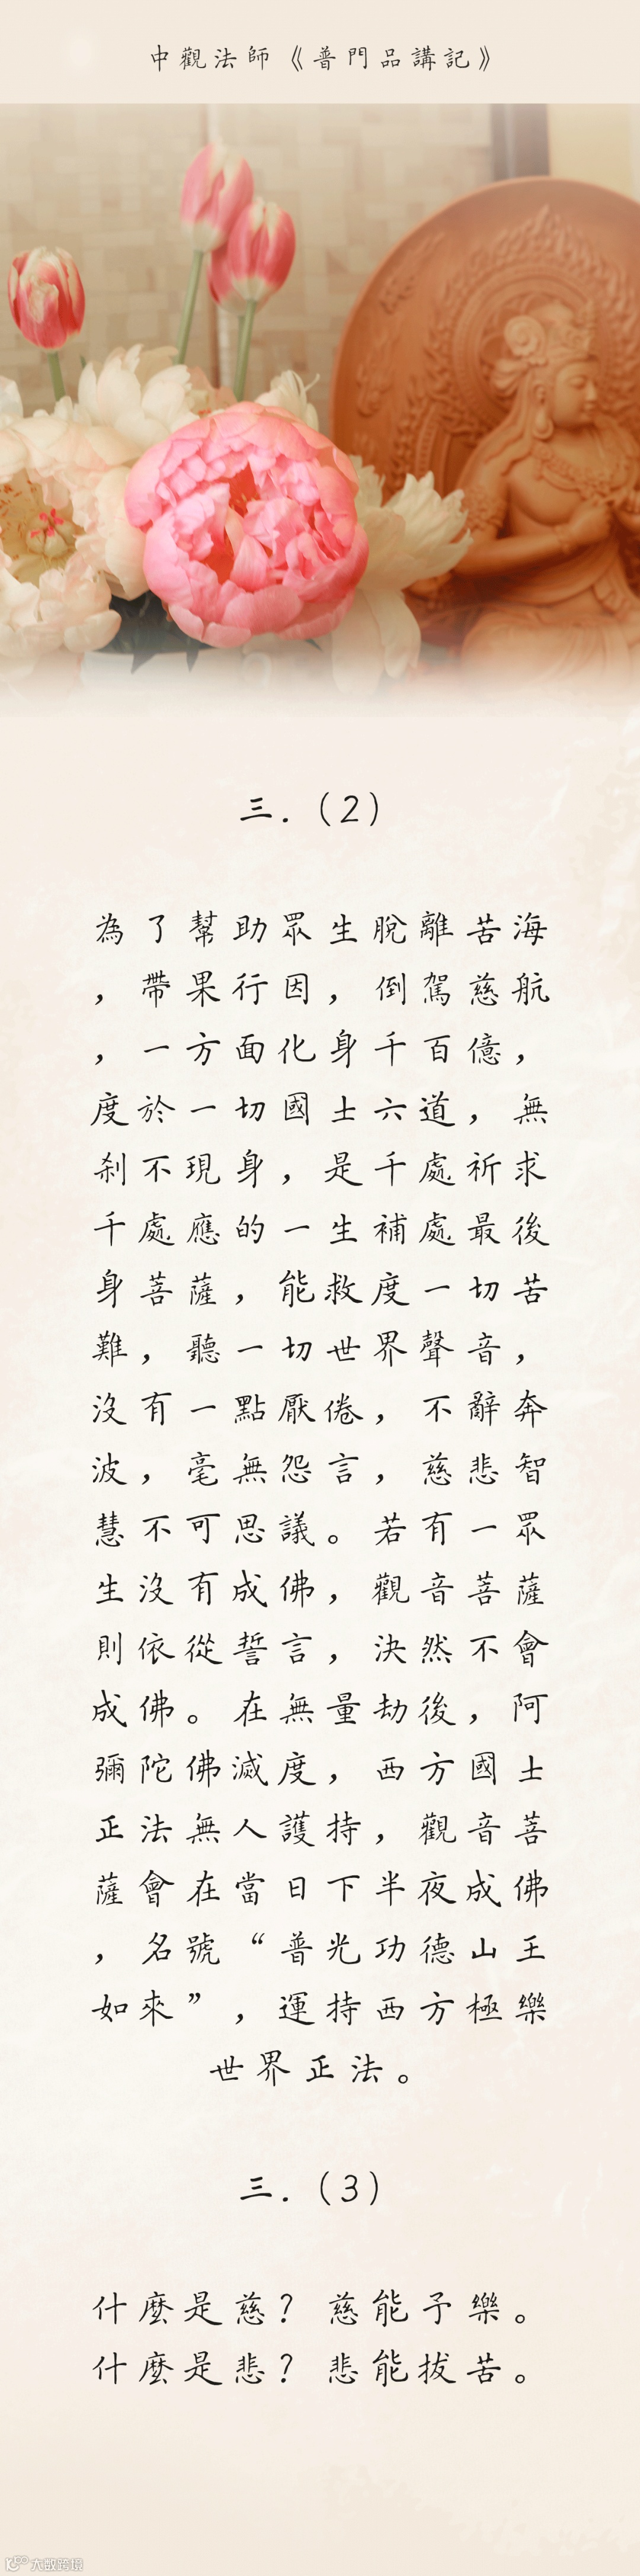 中觀法師《普門品講記》
三.（2）
為了幫助眾生脫離苦海
，帶果行因，倒駕慈航
，一方面化身千百億，
度於一切國土六道，無
剎不現身，是千處祈求
千處應的一生補處最後
身菩薩，能救度一切苦
難，聽一切世界聲音，
沒有一點厭倦，不辭奔
波，毫無怨言，慈悲智
慧不可思議。若有一眾
生沒有成佛，觀音菩薩
則依從誓言，決然不會
成佛。在無量劫後，阿
彌陀佛滅度，西方國土
正法無人護持，觀音菩
薩會在當日下半夜成佛
，名號“普光功德山王
如來”，運持西方極樂
世界正法。
三.（3）
什麼是慈？慈能予樂。
什麼是悲？悲能拔苦。
大蚁跨境